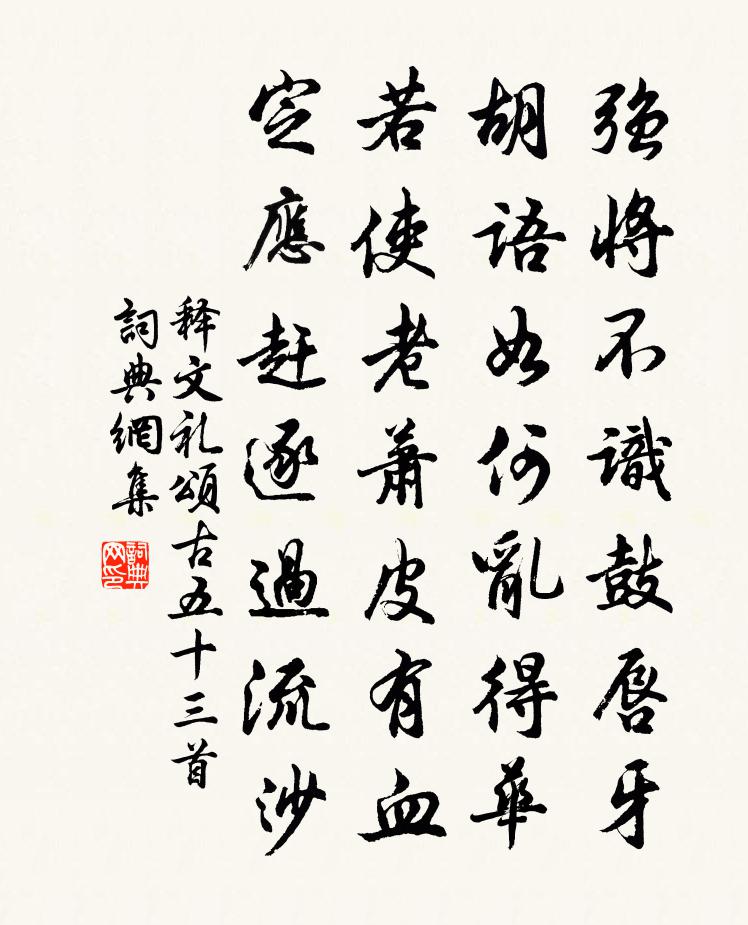 強將不識鼓唇牙
胡語如何亂得華
若使老蕭皮有血
定應赶逐過流沙
释文礼頌古五十三首
詞典網集
詞典网印